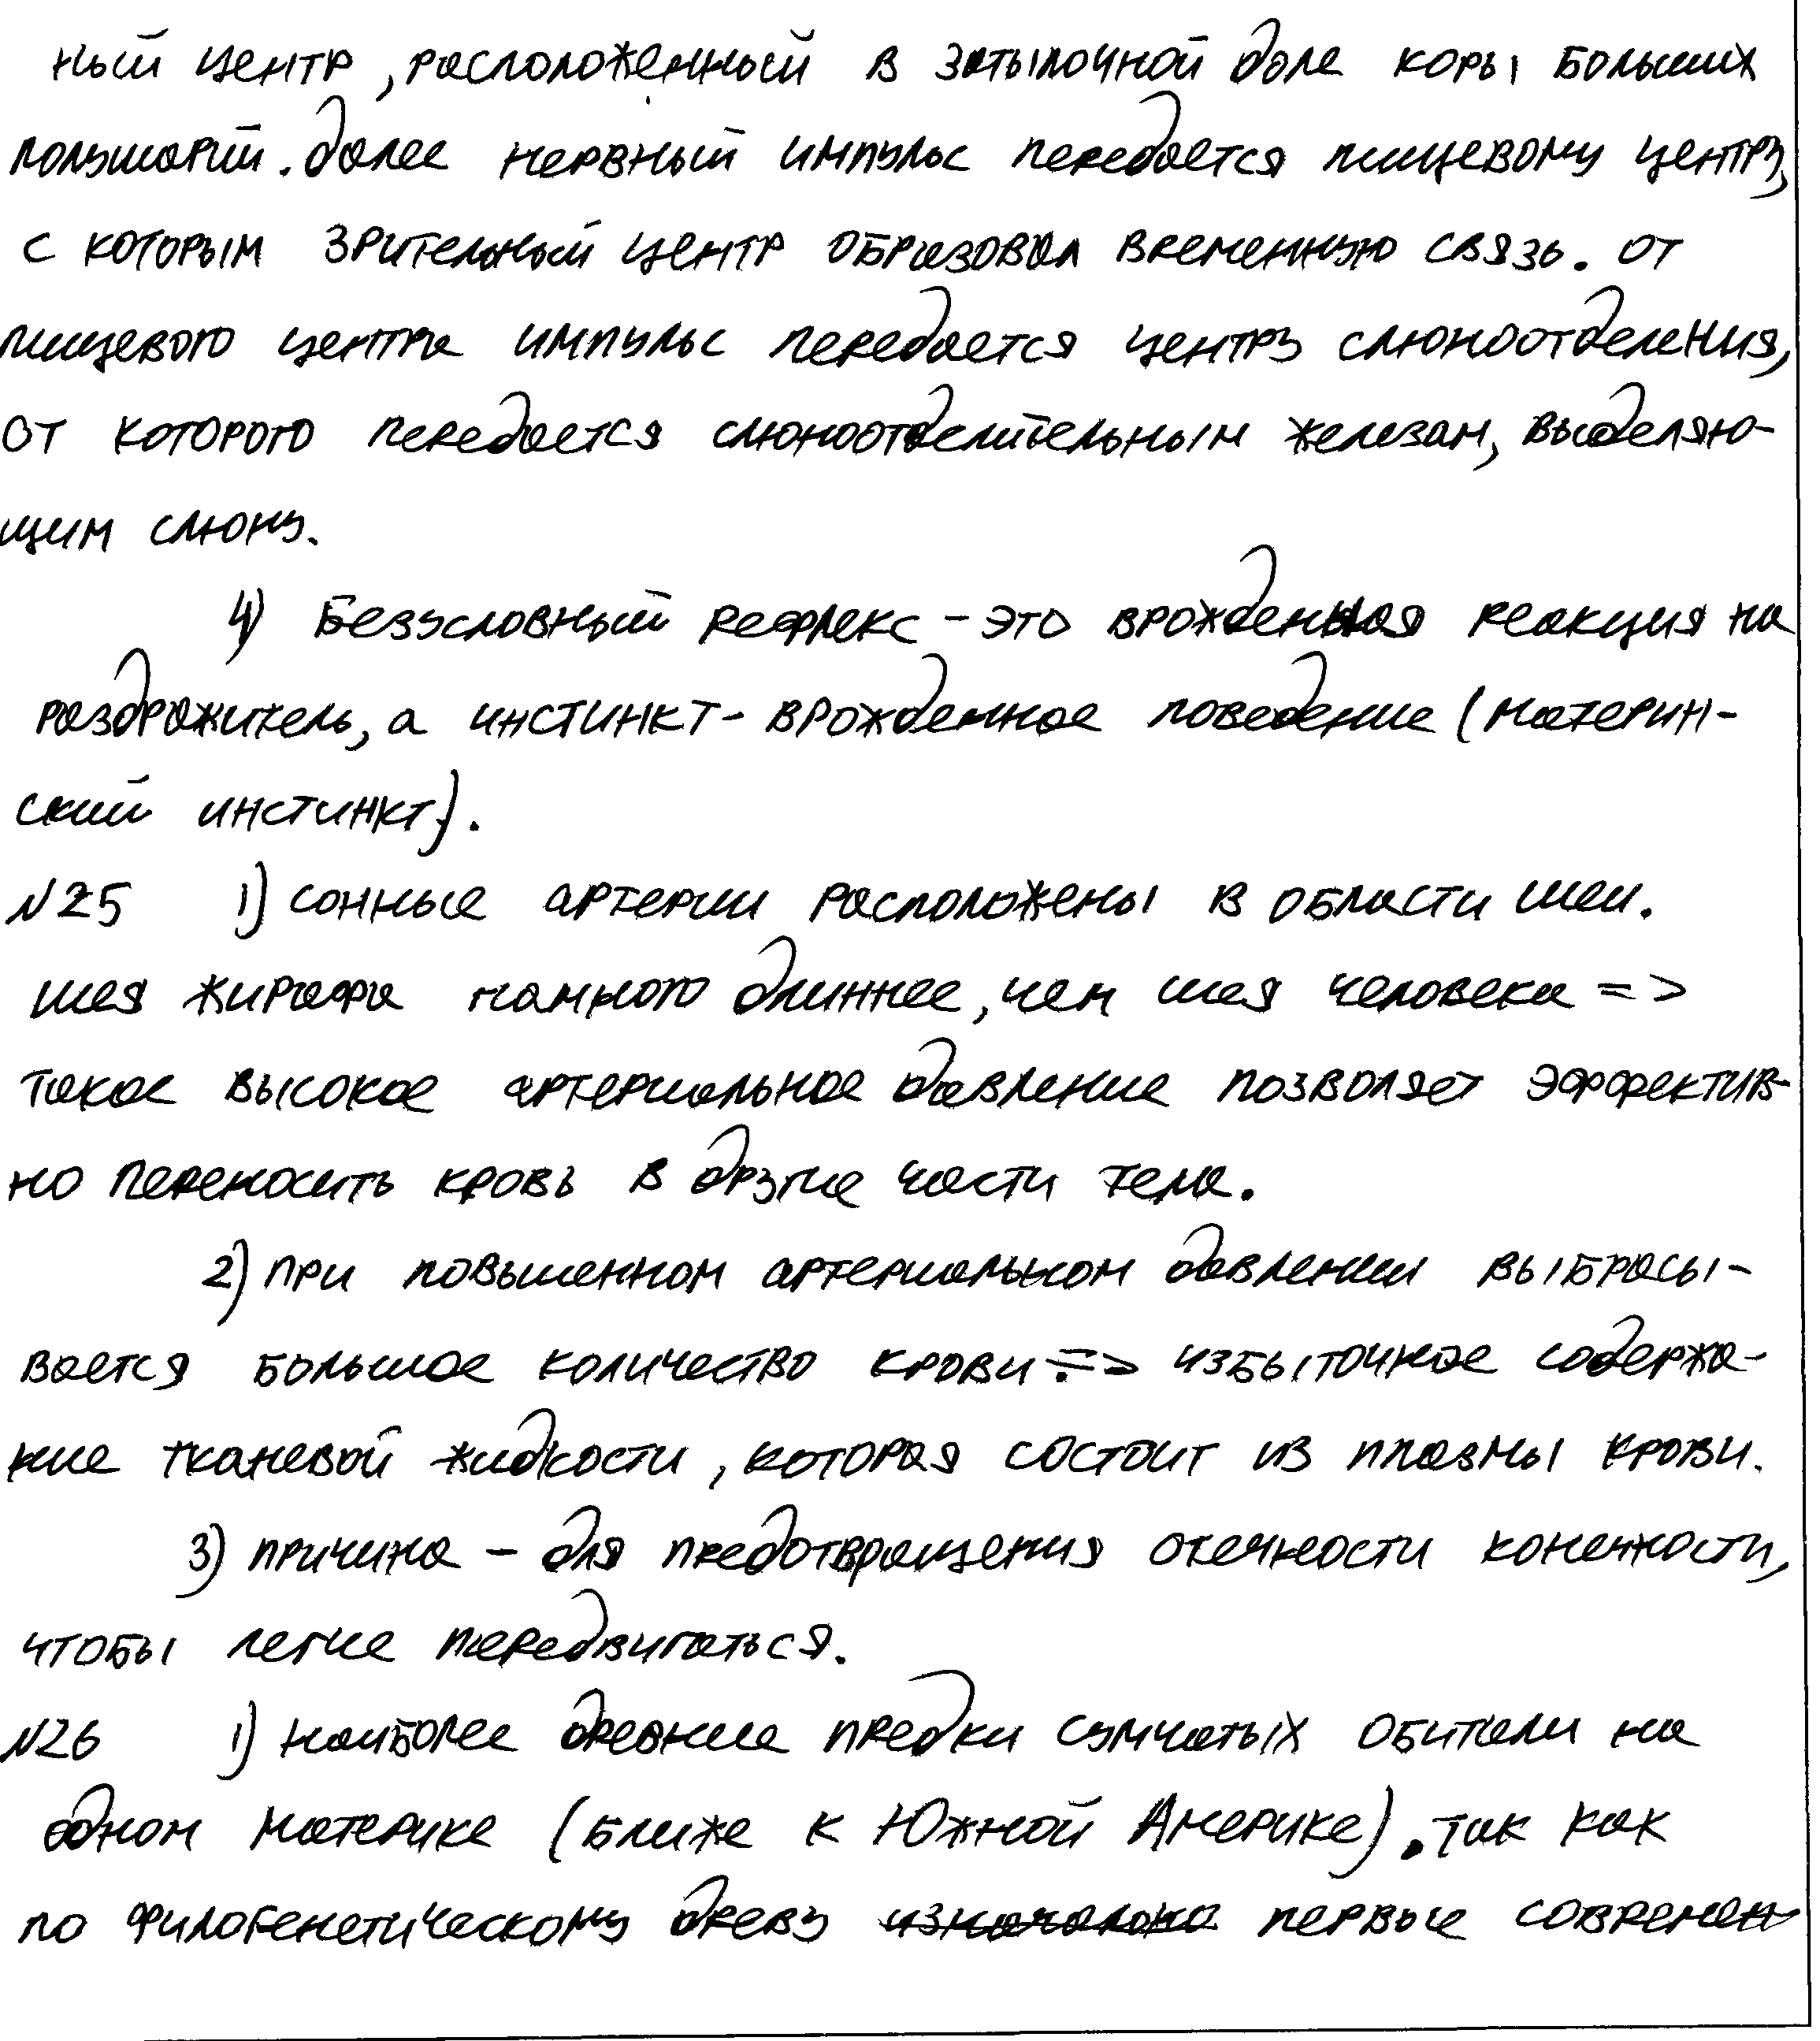 ный центр, расположенный в затылочной доле коры больших
полушарий. далее нервный импульс передается пищевому центру,
с которым зрительный центр образовал временную связь. от
пищевого центра импульс передается центру слюноотделения,
от которого передается слюноотделительным железам, выделяю-
щим слюну.
4) Безусловный рефлекс - это врожденная реакция на
раздражитель, а инстинкт - врожденное поведение (материн-
ский инстинкт).
№25 1) сонные артерии расположены в области шеи.
шея жирафа намного длиннее, чем шея человека =>
такое высокое артериальное давление позволяет эффектив-
но переносить кровь в другие части тела.
2) при повышенном артериальном давлении выбрасы-
вается большое количество крови => избыточное содержа-
ние тканевой жидкости, которая состоит из плазмы крови.
3) причина - для предотвращения отечности конечности,
чтобы легче передвигаться.
№26 1) наиболее древние предки сумчатых обитали на
одном материке (ближе к Южной Америке). так как
по филогенетическому древу изначально первые современ